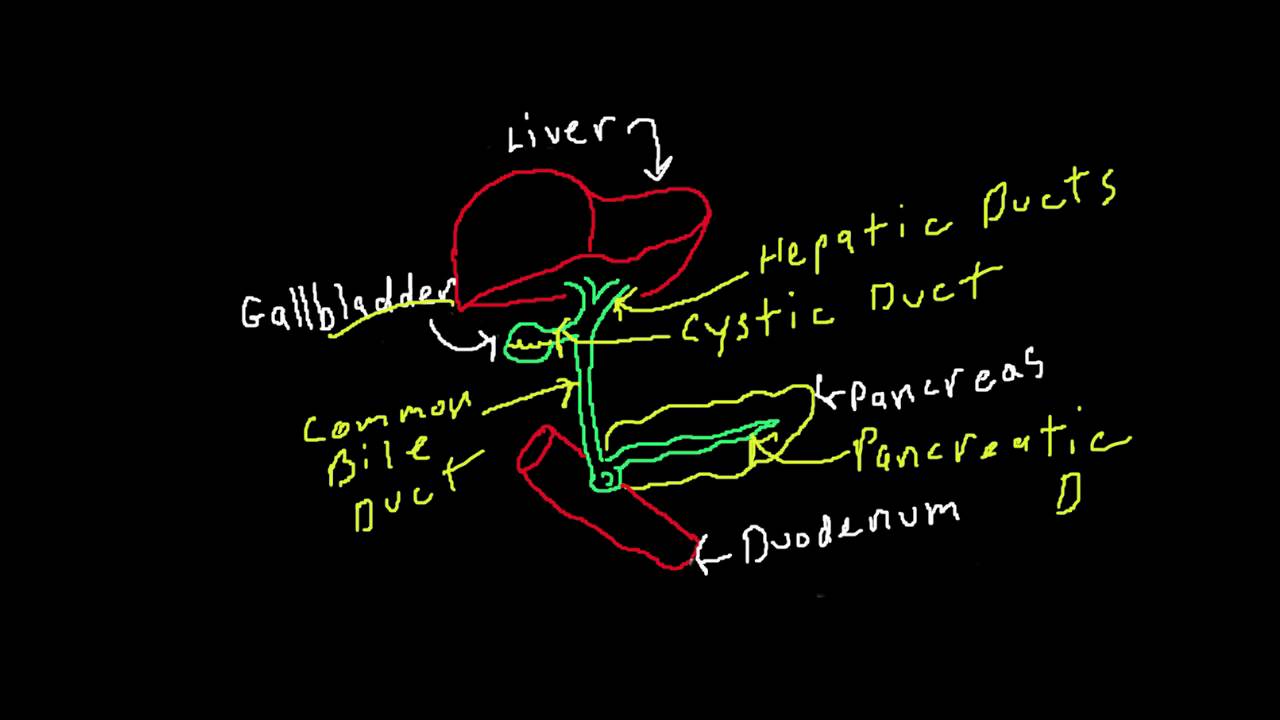 Liver
Hepatic Ducts
Gallbladder
Cystic Duct
Common
Bile
Duct
Pancreas
Pancreatic
D
Duodenum